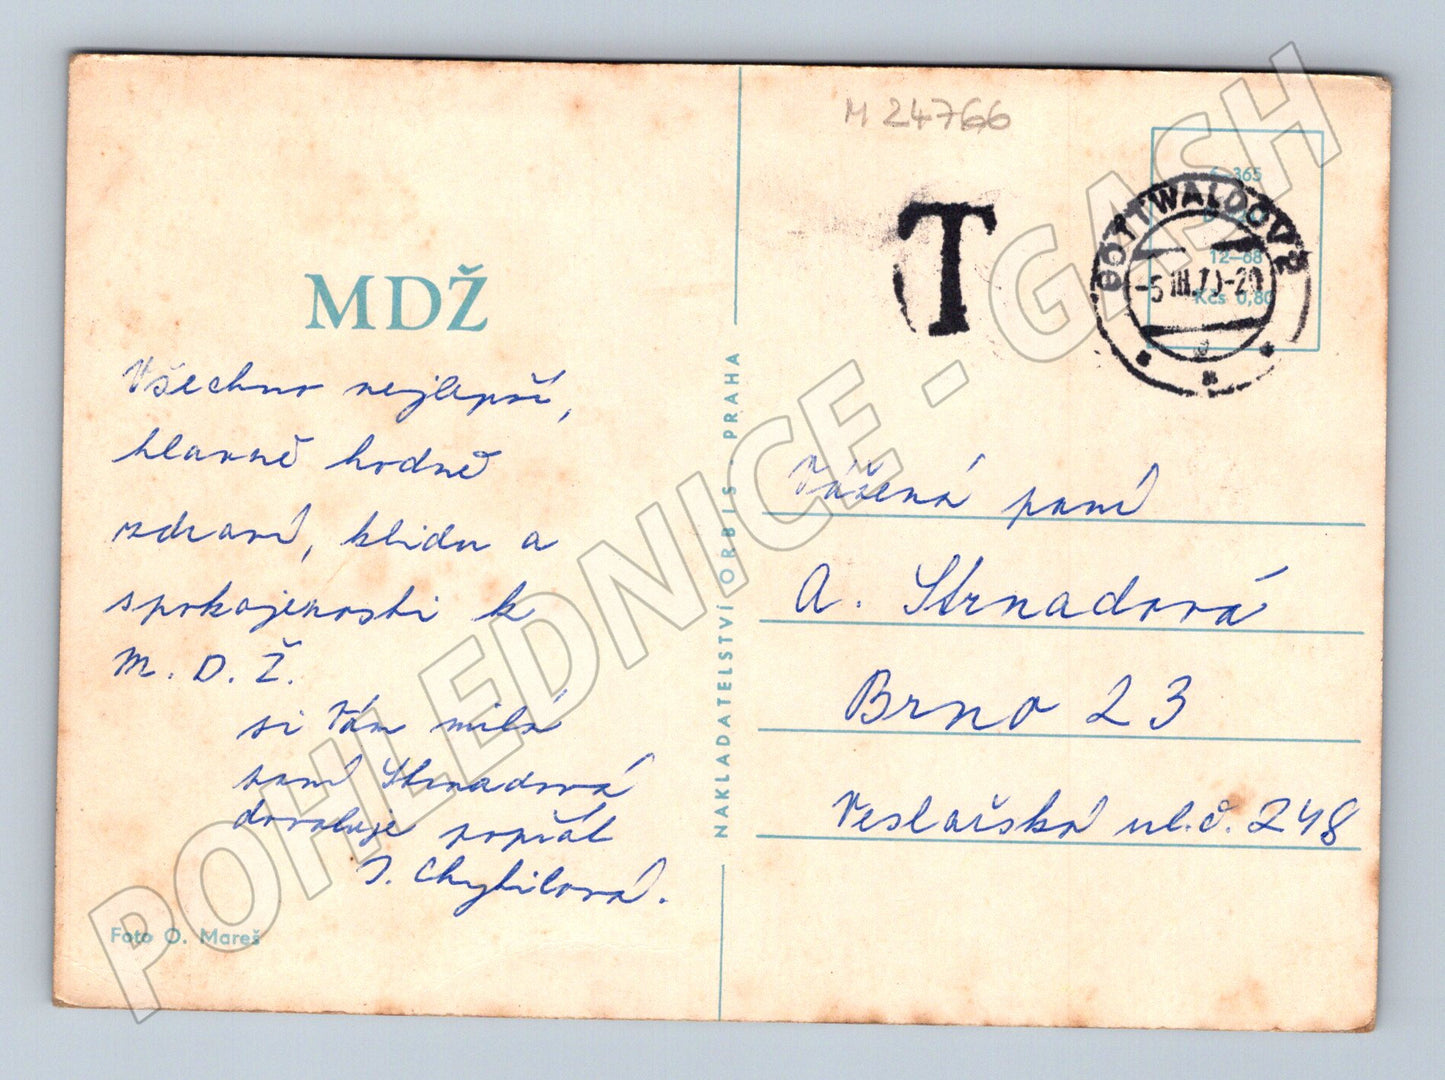 M 24766
MDŽ
Všechno nejlepší,
hlavně hodně
zdraví, klidu a
spokojenosti k
M. D. Ž.
si Vám milá
paní Strnadová
dovoluje popřát
J. Chybilová.
Foto O. Mareš
NAKLADATELSTVÍ ORBIS - PRAHA
T
GOTTWALDOV 2
-5.III.70-20
365
12—68
Kčs 0,80
Vážená paní
A. Strnadová
Brno 23
Veslařská ul. č. 248
POHLEDNICE - GASH